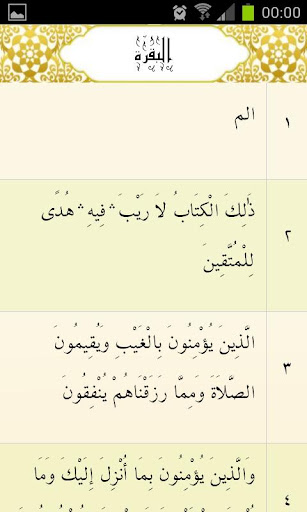 00:00
البقرة
الم
١
ذَٰلِكَ الْكِتَابُ لَا رَيْبَ ۛ فِيهِ ۛ هُدًى
لِلْمُتَّقِينَ
٢
الَّذِينَ يُؤْمِنُونَ بِالْغَيْبِ وَيُقِيمُونَ
الصَّلَاةَ وَمِمَّا رَزَقْنَاهُمْ يُنْفِقُونَ
٣
وَالَّذِينَ يُؤْمِنُونَ بِمَا أُنْزِلَ إِلَيْكَ وَمَا
٤